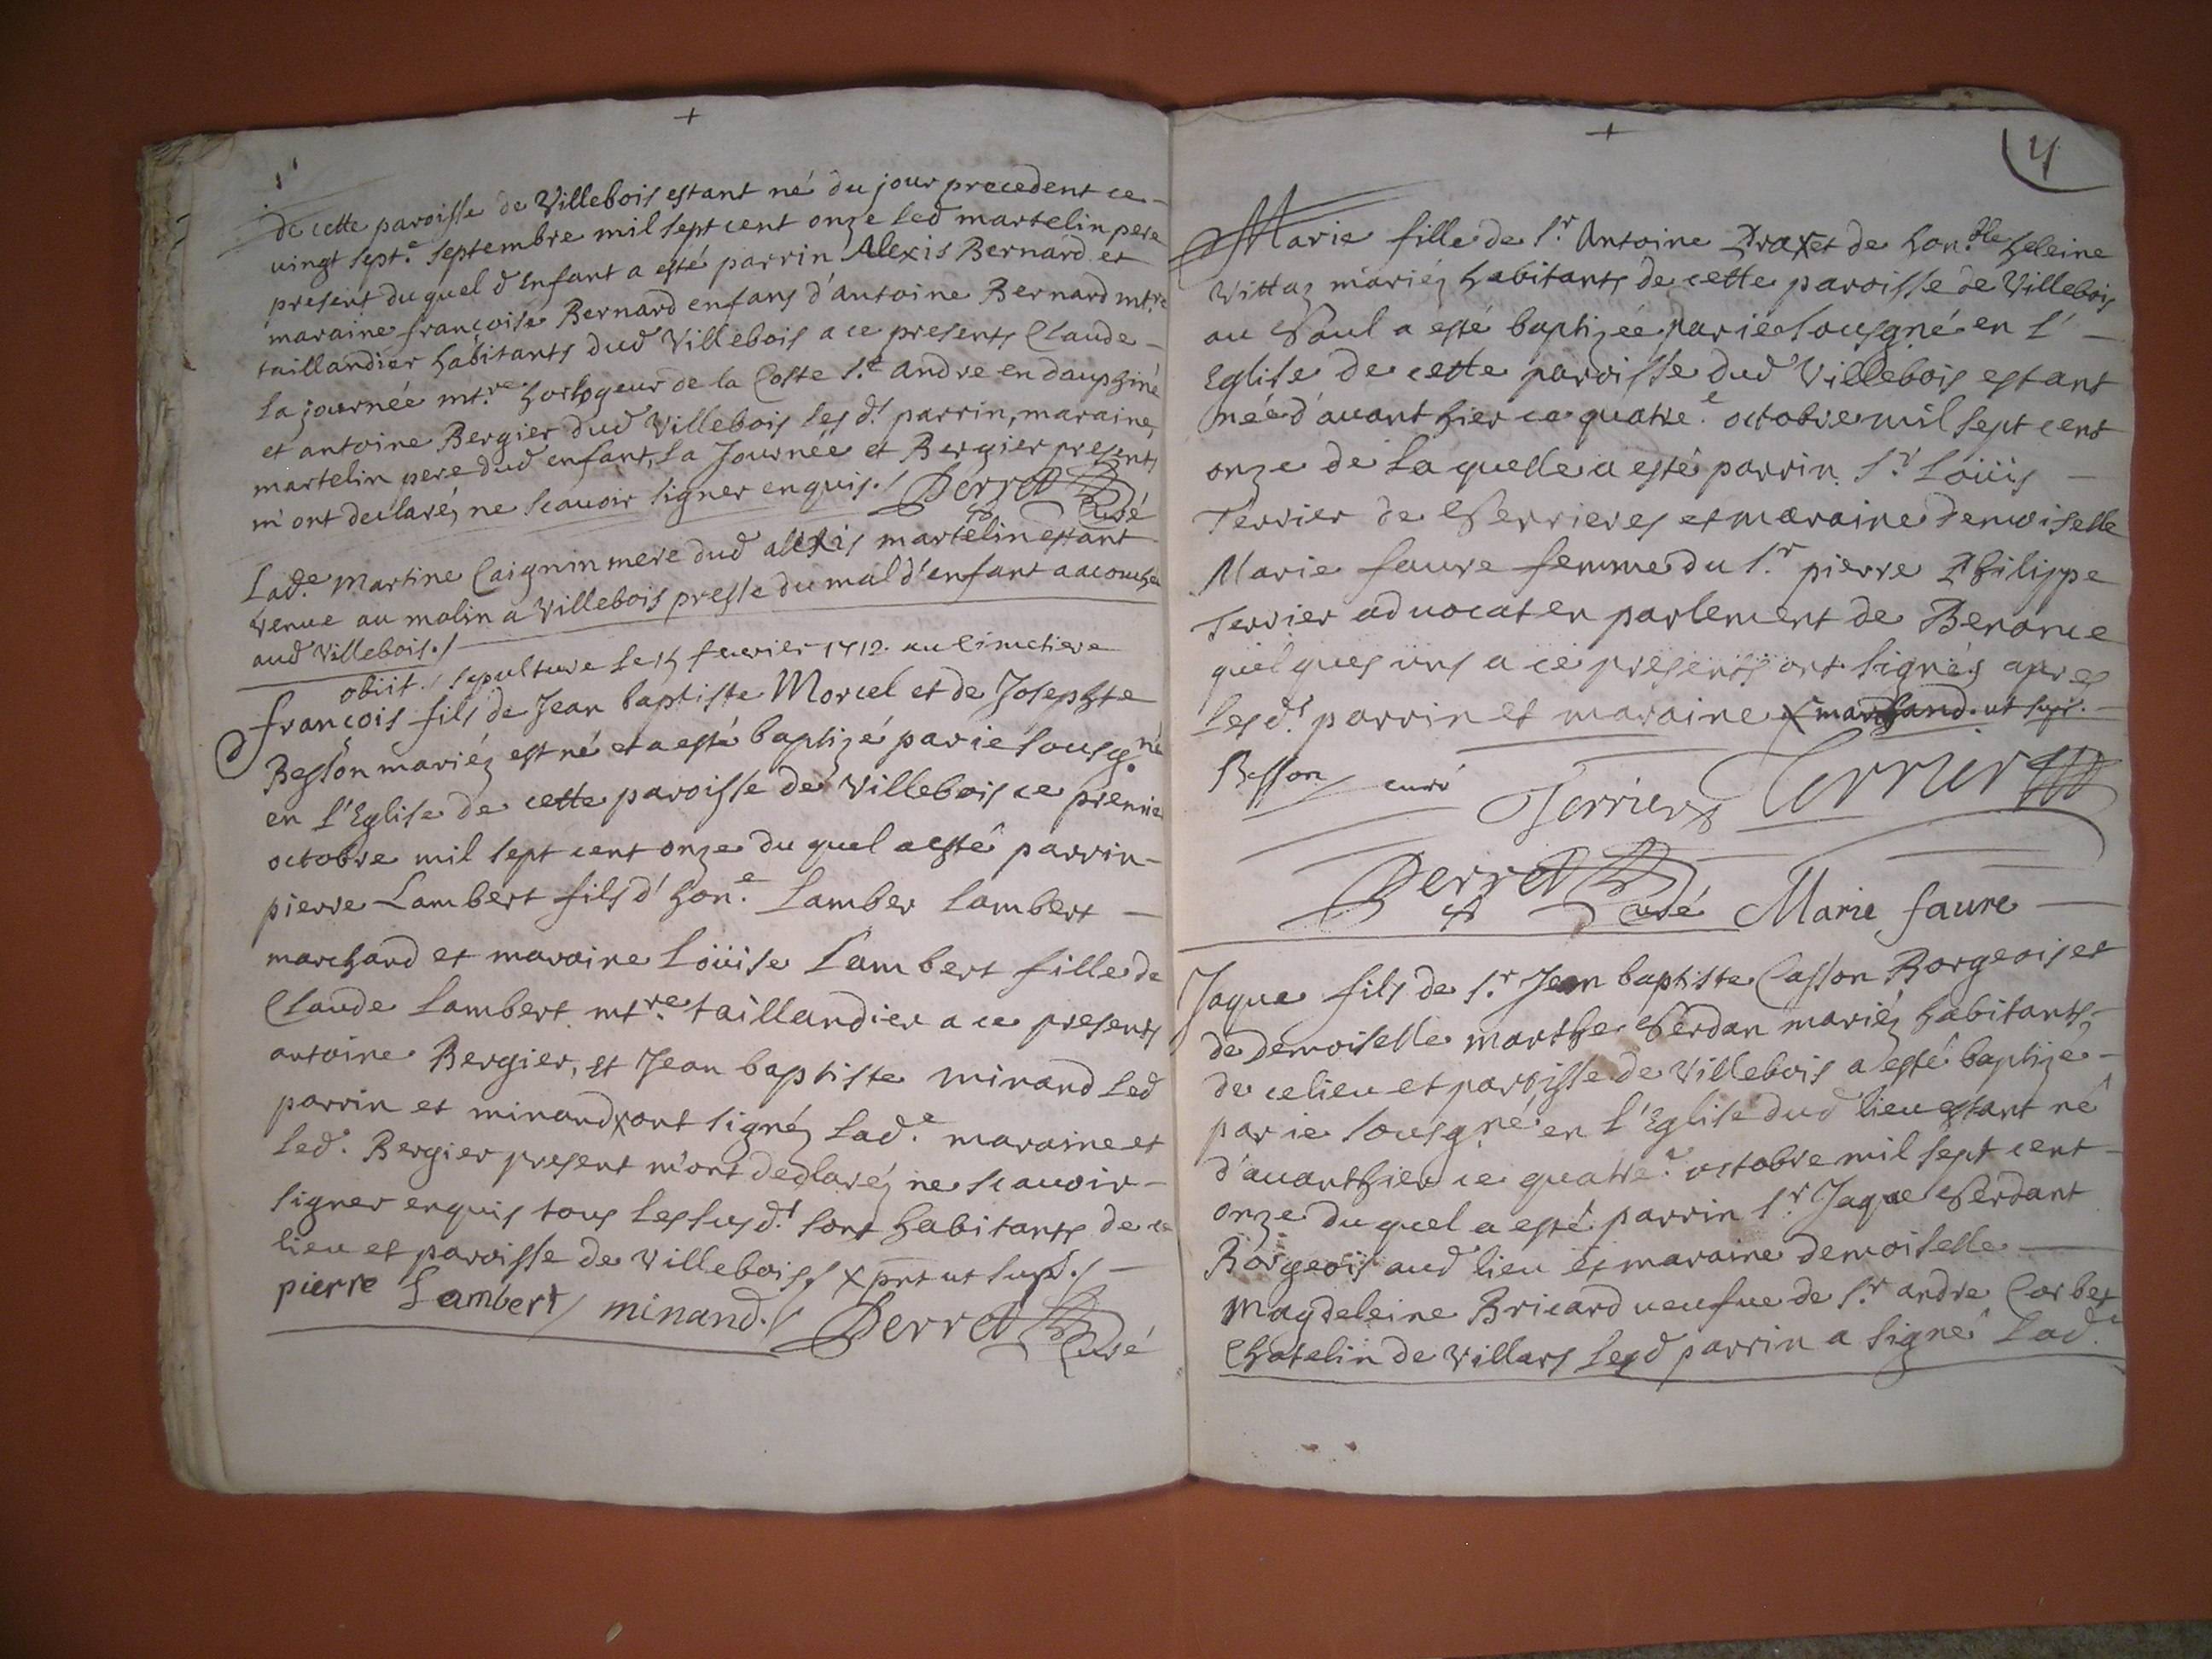 +
de cette paroisse de Villebois estant né du jour precedent ce -
vingt sept.e septembre mil sept cent onze led martelin pere
present duquel d enfant a esté parrin Alexis Bernard et
maraine françoise Bernard enfans d'antoine Bernard mtre
taillandier habitants dud Villebois a ce presents Claude -
la journée mt.re horlogeur de la Coste s.t andre en dauphiné
et antoine Bergier dud Villebois les d.t parrin, maraine,
martelin pere dud enfant, la Journée et Bergier presents
m'ont declaréz ne scauoir signer enquis./ Perret Curé
Lad.e martine Caignin mere dud alexis martelin estant
venue au molin a Villebois presse du mal d'enfant a acouché
aud Villebois./
obiit./ sepulture le 14 feurier 1712. au Cimetiere
françois fils de Jean baptiste Morcel et de Josephte
Besson mariéz est né et a esté baptizé par ie sousg.né
en l'Eglise de cette paroisse de Villebois ce premier
octobre mil sept cent onze du quel a esté parrin -
pierre Lambert fils d'hon.e Lamber Lambert -
marchand et maraine Loüise Lambert fille de
Claude Lambert mt.re taillandier a ce presents
antoine Bergier, et Jean baptiste minand led
parrin et minand x ont signéz lad.e maraine et
led. Bergier present m'ont declaréz ne scauoir -
signer enquis tous les susd.t sont habitants de ce
lieu et paroisse de Villebois x prnt ut sup./ -
pierre Lambert / minand./ Perret Curé
+
4
Marie fille de s.r Antoine Prax et de hon.ble heleine
Vittaz mariéz habitants de cette paroisse de Villebois
au Saul a esté baptizée par ie sousgné en l' -
Eglise de cette paroisse dud Villebois estant
née d'auant hier ce quatre.e octobre mil sept cent
onze de laquelle a esté parrin s.r Loüis -
Terrier de Serrieres et maraine demoiselle
Marie faure femme du s.r pierre Philippe
Terrier aduocat en parlement de
quelques uns a ce presents ont signés apres
les d.t parrin et maraine x marchand. ut supr. -
Besson curé Terrier Terrier
Perret Curé Marie faure -
Jaque fils de s.r Jean baptiste Casson Borgeois et
de Demoiselle marthe Verdan mariéz habitants -
de ce lieu et paroisse de Villebois a esté baptizé -
par ie sousgné en l'Eglise dud lieu estant né
d'auanthier ce quatre.e octobre mil sept cent -
onze du quel a esté parrin s.r Jaque Verdant
Borgeois aud lieu et maraine demoiselle -
Magdeleine Bricard ueufue de s.r andre Corbet
Chatelin de Villars led parrin a signé Lad.e